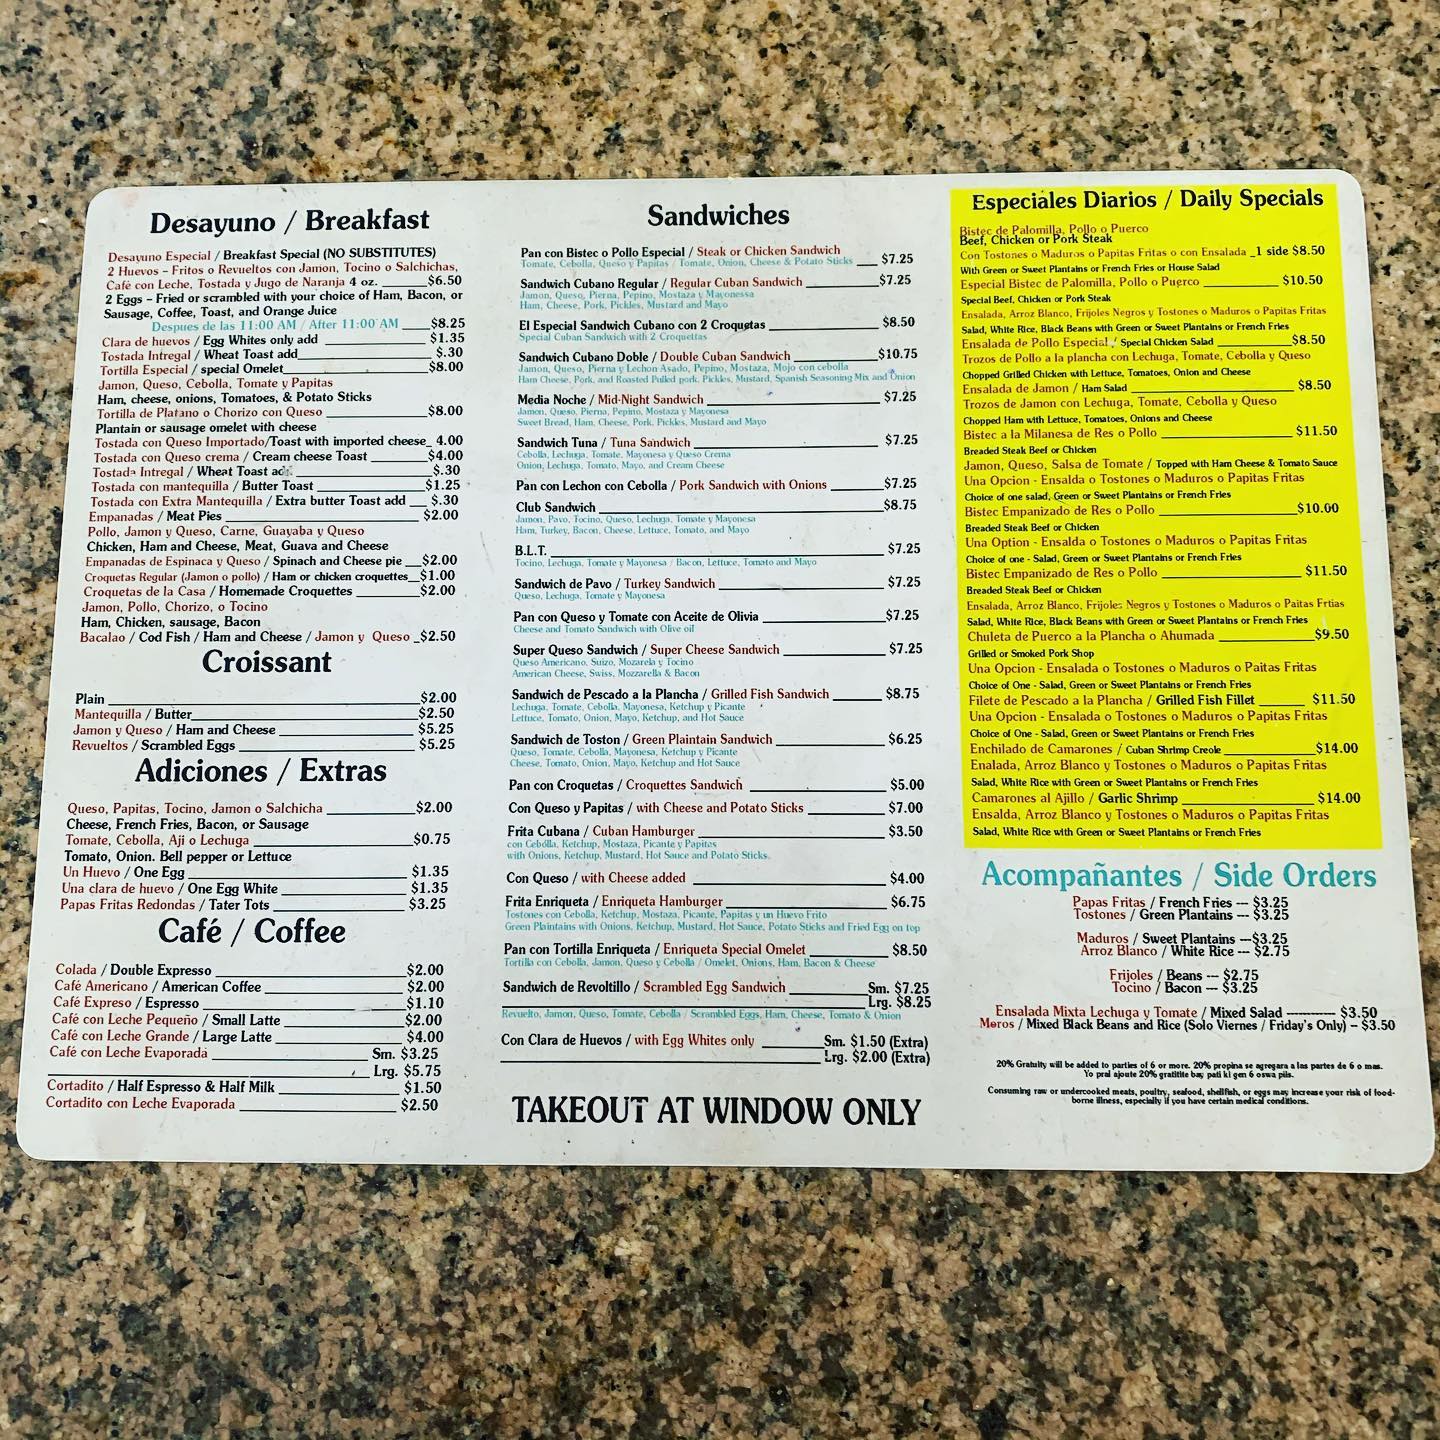 Desayuno / Breakfast
Desayuno Especial / Breakfast Special (NO SUBSTITUTES)
2 Huevos - Fritos o Revueltos con Jamon, Tocino o Salchichas,
Café con Leche, Tostada y Jugo de Naranja 4 oz. ______$6.50
2 Eggs - Fried or scrambled with your choice of Ham, Bacon, or
Sausage, Coffee, Toast, and Orange Juice
Despues de las 11:00 AM / After 11:00 AM ____$8.25
Clara de huevos / Egg Whites only add ______ $1.35
Tostada Intregal / Wheat Toast add______ $.30
Tortilla Especial / special Omelet______$8.00
Jamon, Queso, Cebolla, Tomate y Papitas
Ham, cheese, onions, Tomatoes, & Potato Sticks
Tortilla de Platano o Chorizo con Queso ______$8.00
Plantain or sausage omelet with cheese
Tostada con Queso Importado/Toast with imported cheese_ 4.00
Tostada con Queso crema / Cream cheese Toast ______$4.00
Tostada Intregal / Wheat Toast ______$.30
Tostada con mantequilla / Butter Toast ______$1.25
Tostada con Extra Mantequilla / Extra butter Toast add __ $.30
Empanadas / Meat Pies ______ $2.00
Pollo, Jamon y Queso, Carne, Guayaba y Queso
Chicken, Ham and Cheese, Meat, Guava and Cheese
Empanadas de Espinaca y Queso / Spinach and Cheese pie __$2.00
Croquetas Regular (Jamon o pollo) / Ham or chicken croquettes__$1.00
Croquetas de la Casa / Homemade Croquettes ______$2.00
Jamon, Pollo, Chorizo, o Tocino
Ham, Chicken, sausage, Bacon
Bacalao / Cod Fish / Ham and Cheese / Jamon y Queso _$2.50
Croissant
Plain ______$2.00
Mantequilla / Butter______ $2.50
Jamon y Queso / Ham and Cheese ______ $5.25
Revueltos / Scrambled Eggs ______ $5.25
Adiciones / Extras
Queso, Papitas, Tocino, Jamon o Salchicha ______$2.00
Cheese, French Fries, Bacon, or Sausage
Tomate, Cebolla, Aji o Lechuga ______$0.75
Tomato, Onion. Bell pepper or Lettuce
Un Huevo / One Egg ______ $1.35
Una clara de huevo / One Egg White ______ $1.35
Papas Fritas Redondas / Tater Tots ______ $3.25
Café / Coffee
Colada / Double Expresso ______$2.00
Café Americano / American Coffee ______ $2.00
Café Expreso / Espresso ______ $1.10
Café con Leche Pequeño / Small Latte ______ $2.00
Café con Leche Grande / Large Latte ______ $4.00
Café con Leche Evaporada ______ Sm. $3.25
______ Lrg. $5.75
Cortadito / Half Espresso & Half Milk ______ $1.50
Cortadito con Leche Evaporada ______ $2.50
Sandwiches
Pan con Bistec o Pollo Especial / Steak or Chicken Sandwich
Tomate, Cebolla, Queso y Papitas / Tomate, Onion, Cheese & Potato Sticks ___ $7.25
Sandwich Cubano Regular / Regular Cuban Sandwich ______$7.25
Jamon, Queso, Pierna, Pepino, Mostaza y Mayonessa
Ham, Cheese, Pork, Pickles, Mustard and Mayo
El Especial Sandwich Cubano con 2 Croquetas ______ $8.50
Special Cuban Sandwich with 2 Croquettas
Sandwich Cubano Doble / Double Cuban Sandwich ______$10.75
Jamon, Queso, Pierna y Lechon Asado, Pepino, Mostaza, Mojo con cebolla
Ham Cheese, Pork, and Roasted Pulled pork, Pickles, Mustard, Spanish Seasoning Mix and Onion
Media Noche / Mid-Night Sandwich ______ $7.25
Jamon, Queso, Pierna, Pepino, Mostaza y Mayonesa
Sweet Bread, Ham, Cheese, Pork, Pickles, Mustard and Mayo
Sandwich Tuna / Tuna Sandwich ______ $7.25
Cebolla, Lechuga, Tomate, Mayonesa y Queso Crema
Onion, Lechuga, Tomato, Mayo, and Cream Cheese
Pan con Lechon con Cebolla / Pork Sandwich with Onions ______$7.25
Club Sandwich ______$8.75
Jamon, Pavo, Tocino, Queso, Lechuga, Tomate y Mayonesa
Ham, Turkey, Bacon, Cheese, Lettuce, Tomato, and Mayo
B.L.T. ______ $7.25
Tocino, Lechuga, Tomate y Mayonesa / Bacon, Lettuce, Tomato and Mayo
Sandwich de Pavo / Turkey Sandwich ______ $7.25
Queso, Lechuga, Tomate y Mayonesa
Pan con Queso y Tomate con Aceite de Olivia ______ $7.25
Cheese and Tomato Sandwich with Olive oil
Super Queso Sandwich / Super Cheese Sandwich ______ $7.25
Queso Americano, Suizo, Mozarela y Tocino
American Cheese, Swiss, Mozzarella & Bacon
Sandwich de Pescado a la Plancha / Grilled Fish Sandwich ______ $8.75
Lechuga, Tomate, Cebolla, Mayonesa, Ketchup y Picante
Lettuce, Tomato, Onion, Mayo, Ketchup, and Hot Sauce
Sandwich de Toston / Green Plaintain Sandwich ______ $6.25
Queso, Tomate, Cebolla, Mayonesa, Ketchup y Picante
Cheese, Tomato, Onion, Mayo, Ketchup and Hot Sauce
Pan con Croquetas / Croquettes Sandwich ______ $5.00
Con Queso y Papitas / with Cheese and Potato Sticks ______ $7.00
Frita Cubana / Cuban Hamburger ______ $3.50
con Cebolla, Ketchup, Mostaza, Picante y Papitas
with Onions, Ketchup, Mustard, Hot Sauce and Potato Sticks.
Con Queso / with Cheese added ______ $4.00
Frita Enriqueta / Enriqueta Hamburger ______ $6.75
Tostones con Cebolla, Ketchup, Mostaza, Picante, Papitas y un Huevo Frito
Green Plaintains with Onions, Ketchup, Mustard, Hot Sauce, Potato Sticks and Fried Egg on top
Pan con Tortilla Enriqueta / Enriqueta Special Omelet______ $8.50
Tortilla con Cebolla, Jamon, Queso y Cebolla / Omelet, Onions, Ham, Bacon & Cheese
Sandwich de Revoltillo / Scrambled Egg Sandwich ______Sm. $7.25
______Lrg. $8.25
Revuelto, Jamon, Queso, Tomate, Cebolla / Scrambled Eggs, Ham, Cheese, Tomato & Onion
Con Clara de Huevos / with Egg Whites only ______Sm. $1.50 (Extra)
______ Lrg. $2.00 (Extra)
TAKEOUT AT WINDOW ONLY
Especiales Diarios / Daily Specials
Bistec de Palomilla, Pollo o Puerco
Beef, Chicken or Pork Steak
Con Tostones o Maduros o Papitas Fritas o con Ensalada _1 side $8.50
With Green or Sweet Plantains or French Fries or House Salad
Especial Bistec de Palomilla, Pollo o Puerco ______ $10.50
Special Beef, Chicken or Pork Steak
Ensalada, Arroz Blanco, Frijoles Negros y Tostones o Maduros o Papitas Fritas
Salad, White Rice, Black Beans with Green or Sweet Plantains or French Fries
Ensalada de Pollo Especial / Special Chicken Salad ______$8.50
Trozos de Pollo a la plancha con Lechuga, Tomate, Cebolla y Queso
Chopped Grilled Chicken with Lettuce, Tomatoes, Onion and Cheese
Ensalada de Jamon / Ham Salad ______ $8.50
Trozos de Jamon con Lechuga, Tomate, Cebolla y Queso
Chopped Ham with Lettuce, Tomatoes, Onions and Cheese
Bistec a la Milanesa de Res o Pollo ______ $11.50
Breaded Steak Beef or Chicken
Jamon, Queso, Salsa de Tomate / Topped with Ham Cheese & Tomato Sauce
Una Opcion - Ensalda o Tostones o Maduros o Papitas Fritas
Choice of one salad, Green or Sweet Plantains or French Fries
Bistec Empanizado de Res o Pollo ______ $10.00
Breaded Steak Beef or Chicken
Una Option - Ensalda O Tostones o Maduros o Papitas Fritas
Choice of one - Salad, Green or Sweet Plantains or French Fries
Bistec Empanizado de Res o Pollo ______ $11.50
Breaded Steak Beef or Chicken
Ensalada, Arroz Blanco, Frijoles Negros y Tostones o Maduros o Paitas Frtias
Salad, White Rice, Black Beans with Green or Sweet Plantains or French Fries
Chuleta de Puerco a la Plancha o Ahumada ______ $9.50
Grilled or Smoked Pork Shop
Una Opcion - Ensalada o Tostones o Maduros o Paitas Fritas
Choice of One - Salad, Green or Sweet Plantains or French Fries
Filete de Pescado a la Plancha / Grilled Fish Fillet ______ $11.50
Una Opcion - Ensalada o Tostones o Maduros o Papitas Fritas
Choice of One - Salad, Green or Sweet Plantains or French Fries
Enchilado de Camarones / Cuban Shrimp Creole ______$14.00
Enalada, Arroz Blanco y Tostones o Maduros o Papitas Fritas
Salad, White Rice with Green or Sweet Plantains or French Fries
Camarones al Ajillo / Garlic Shrimp ______ $14.00
Ensalda, Arroz Blanco y Tostones o Maduros o Papitas Fritas
Salad, White Rice with Green or Sweet Plantains or French Fries
Acompañantes / Side Orders
Papas Fritas / French Fries --- $3.25
Tostones / Green Plantains --- $3.25
Maduros / Sweet Plantains ---$3.25
Arroz Blanco / White Rice --- $2.75
Frijoles / Beans --- $2.75
Tocino / Bacon --- $3.25
Ensalada Mixta Lechuga y Tomate / Mixed Salad ----------- $3.50
Moros / Mixed Black Beans and Rice (Solo Viernes / Friday's Only) – $3.50
20% Gratuity will be added to parties of 6 or more. 20% propina se agregara a las partes de 6 o mas.
Yo pral ajoute 20% gratitite bay pati ki gen 6 oswa plis.
Consuming raw or undercooked meats, poultry, seafood, shellfish, or eggs may increase your risk of food-
borne illness, especially if you have certain medical conditions.